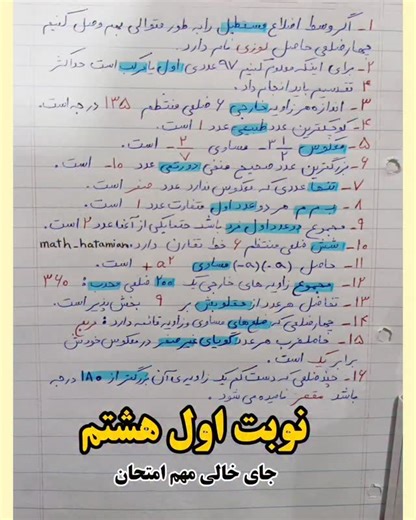 ۱- اگر وسط اضلاع مستطیل را به طور متوالی بهم وصل کنیم
چهارضلعی حاصل لوزی نام دارد.
۲- برای اینکه معلوم کنیم ۹۷ عددی اول یا مرکب است حداکثر
۴ تقسیم باید انجام داد.
۳- اندازه هر زاویه خارجی ۶ ضلعی منتظم ۱۳۵ درجه است.
۴- کوچکترین عدد طبیعی عدد ۱ است.
۵- معکوس ۳ ۱/۲ - مساوی ۲/۷ - است.
۶- بزرگترین عدد صحیح منفی دو رقمی عدد ۱۰- است.
۷- تنها عددی که معکوس ندارد عدد صفر است.
۸- ب.م.م هر دو عدد اول متفاوت عدد ۱ است.
۹- مجموع دو عدد اول فرد باشد حتما یکی از آنها عدد ۲ است.
۱۰- شش ضلعی منتظم ۶ خط تقارن دارد. math_hatamian
۱۱- حاصل (-a)(-a) مساوی +a² است.
۱۲- مجموع زاویه های خارجی یک ۲۰۰ ضلعی محدب: ۳۶۰
۱۳- تفاضل هر عدد از مقلوبش بر ۹ بخش پذیر است.
۱۴- چهارضلعی که ضلع های مساوی و زاویه قائمه دارد: مربع
۱۵- حاصلضرب هر عدد گویای غیر صفر در معکوس خودش
برابر یک است.
۱۶- چند ضلعی که دست کم یک زاویه ی آن بزرگتر از ۱۸۰ درجه
باشد مقعر نامیده می شود.
نوبت اول هشتم
جای خالی مهم امتحان